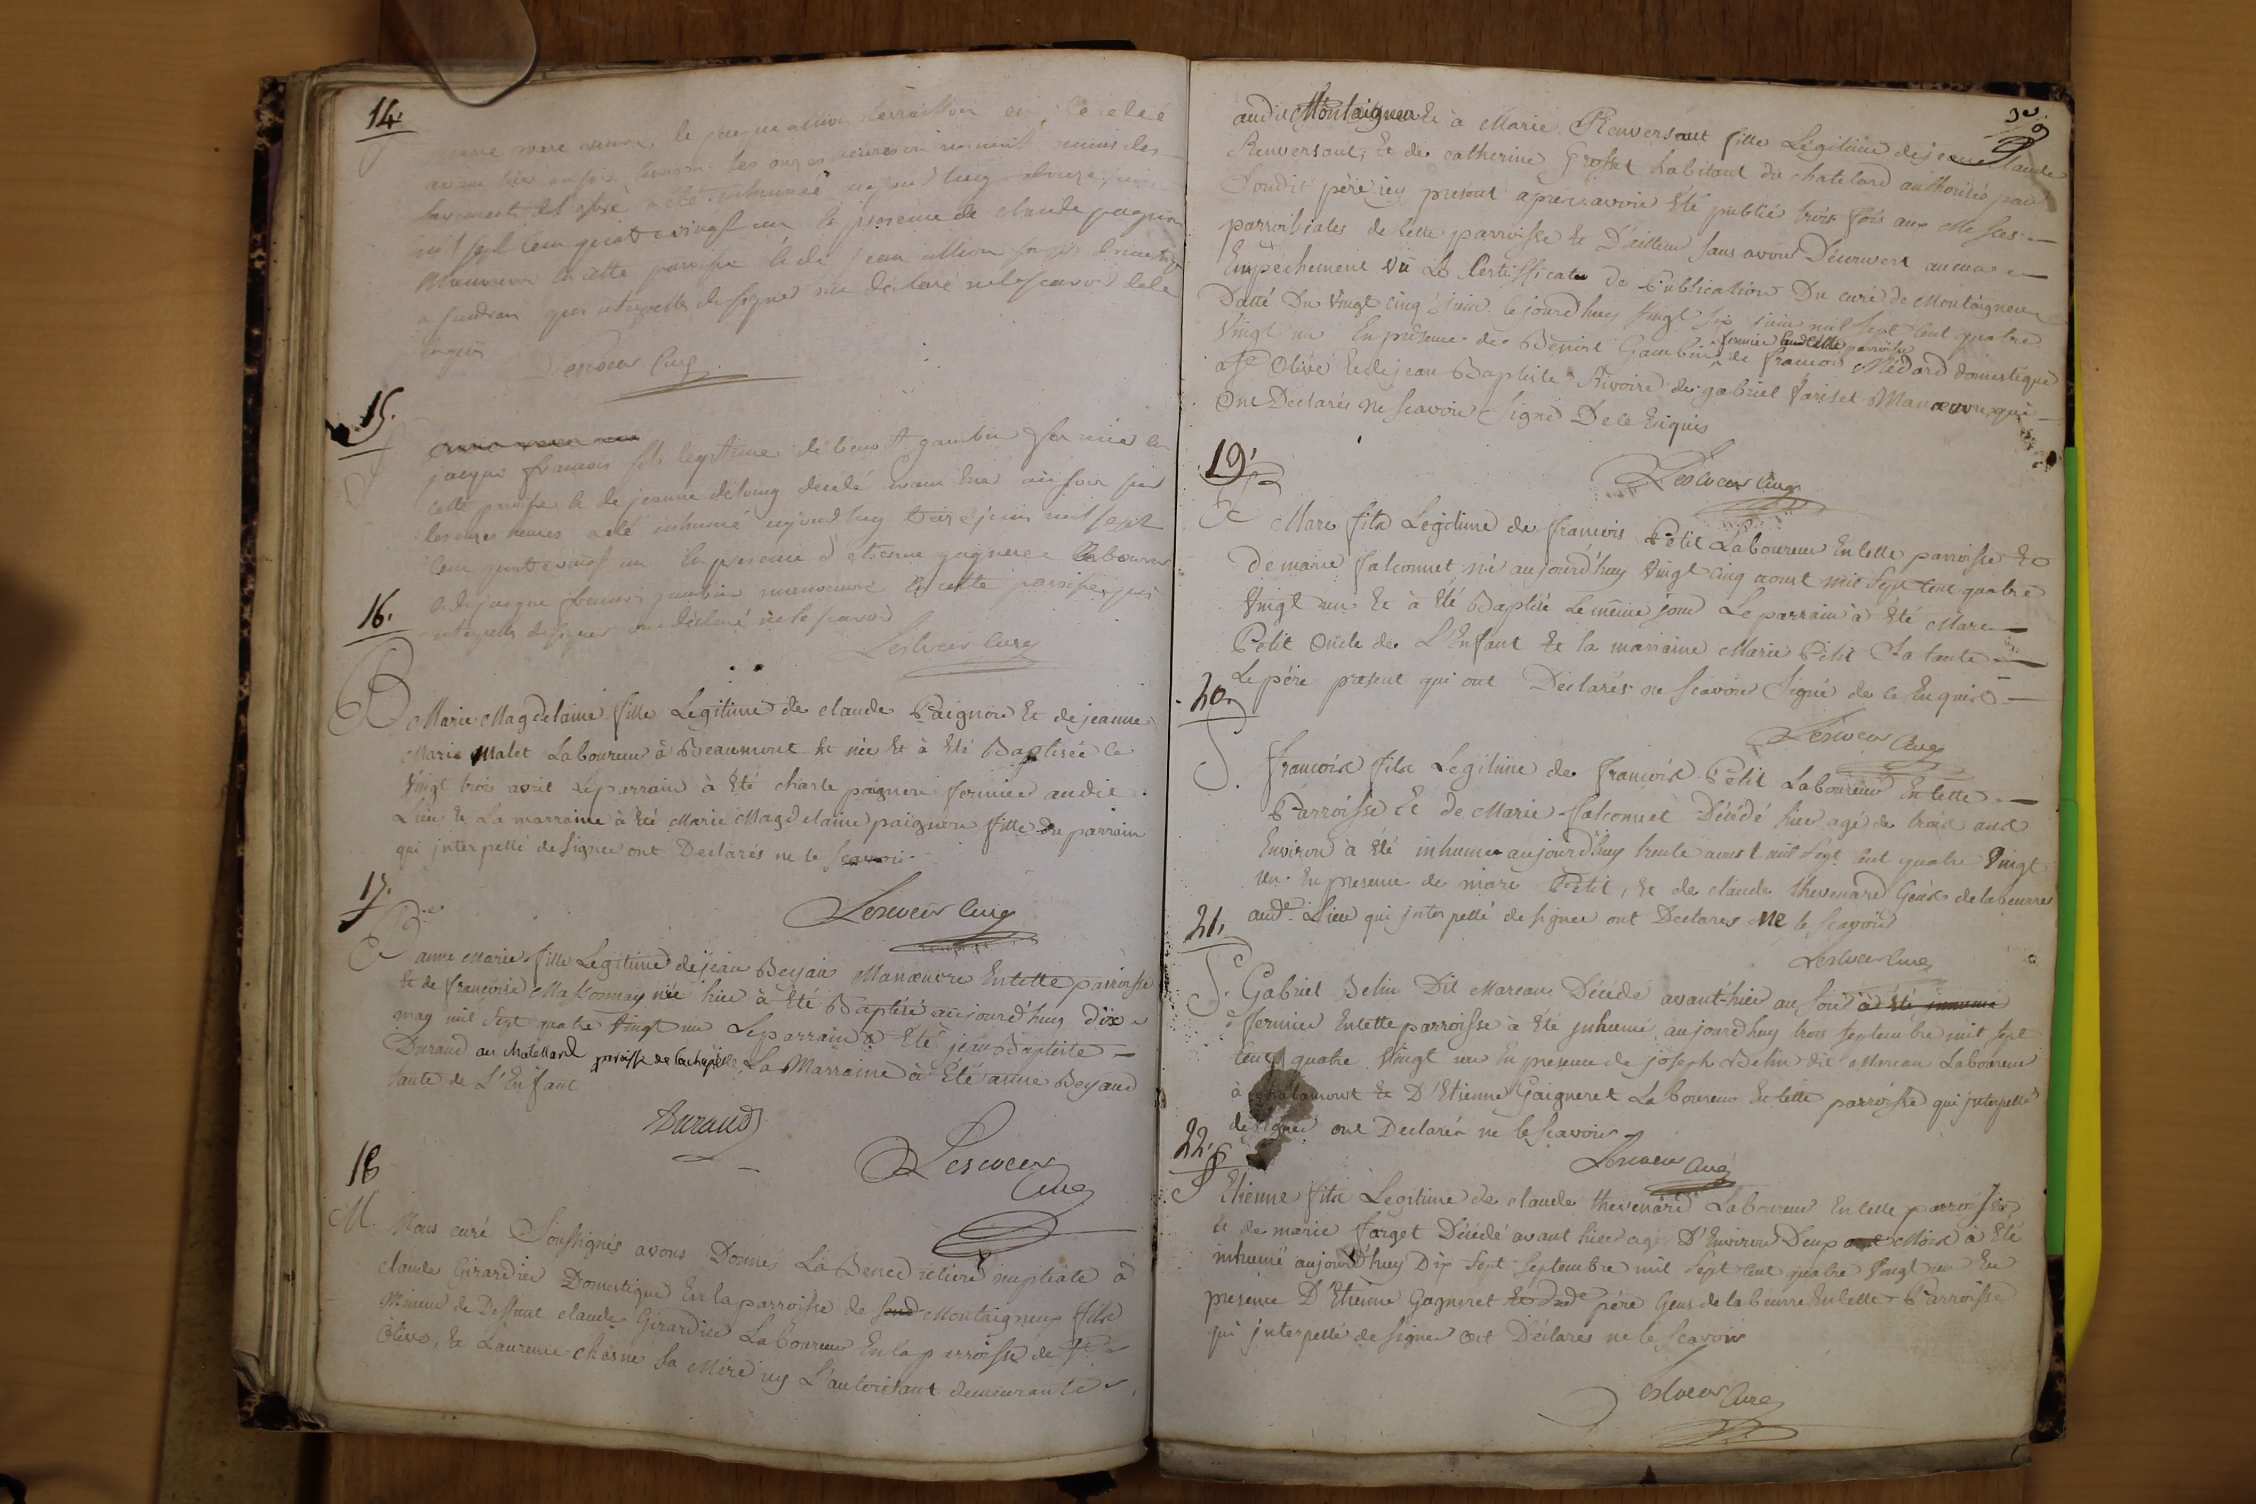 14.
avant hier au soir environ les onze heures
sacrements de a été inhumée aujourd'huy douze juin
mil sept cent quatre vingt un en presence de claude pagnon
Manœuvre en cette paroisse et de jean
qui interpellés de signer ont declaré ne le scavoir de ce
enquis
Leswear Curé
15.
S
jacque francois fils legitime de benoit gambin fermier en
cette paroisse et de jeanne decedé avant hier au soir sur
les onze heures a été inhumé aujourd huy treize juin mil sept
cent quatre vingt un en presence d'etienne gagneret laboureur
et de jacque francois gambin manoeuvre en cette paroisse qui
interpellés de signer ont declaré ne le scavoir
Leswear Curé
16.
B Marie Magdelaine fille Legitime de claude Paignon Et de jeanne
Marie Malet Laboureur à Beaumont Et née Et à Eté Baptisée le
Vingt trois avril Le parrain à Eté charle paignon fermier audit
Lieu Et La marraine à Eté Marie Magdelaine paignon fille du parrain
qui jnterpellé de signer ont Declarés ne le scavoir
Leswear Curé
17.
B anne Marie fille Legitime de jean Beyjau Manœuvre En cette parroisse
Et de francoise née hier à Eté Baptisé aujourd'huy dix
may mil sept quatre Vingt un Le parrain à Eté jean Baptiste
Duraud au chatellard paroisse de la chapelle La Marraine à Eté anne Beyaud
tante de L'Enfant
Duraud
Leswear
Curé
18
M. Nous curé Soussignés avons Donnés La Benediction nuptiale à
claude Girardier Domestique En la parroisse de Montaigneux fils
Mineur de Deffunt claude Girardier Laboureur En la parroisse de Ste
Olive, Et Laurence chesne Sa Mère icy L'autorisant demeurante
audit Montaigneux Et à Marie Renversaut fille Legitime de jean claude
Renversaut, Et de catherine Grosset habitant du chatelard authorisés par
Soudit père icy present apres avoir Eté publié trois fois aux Messes
parroissiales de cette parroisse Et D'ailleur sans avoir Découvert aucun
Empechement Vû Le Certifficate de Publication Du curé de Montaigneux
Datté Du Vingt cinq juin ce jourd'huy Vingt six juin mil sept cent quatre
Vingt un En presence de Benoist Gambin fermier En cette parroisse de francois Médard domestique
a Ste Olive Et de jean Baptiste Rivoire de gabriel Variset Manœuvre qui
Ont Declarés Ne Scavoir Signé De ce Enquis
Leswear Curé
19.
B Marc fils Legitime de francois Petit Laboureur En cette parroisse Et
De marie falconnet né aujourd'huy Vingt cinq aoust mil sept cent quatre
Vingt un Et à Eté Baptisé Le même jour Le parrain à Eté Marc
Petit Oncle de L'Enfant Et la marraine Marie Petit Sa tante
Le père present qui ont Déclarés ne scavoir Signé de ce Enquis
Leswear Curé
20.
S. francois fils Legitime de francois Petit Laboureur En cette
Parroisse Et de Marie falconnet Décédé hier agé de trois ans
Environ à Eté inhumé aujourd'huy trente aoust mil sept cent quatre Vingt
un En presence de marc Petit, Et de claude thevenard Gens de labeurres
aude. Lieu qui jnterpellé de signer ont Declares Ne le scavoir
Leswear Curé
21.
S. Gabriel Belin Dit Moreau Décédé avant-hier au soir à Eté inhumé
fermier En cette parroisse à Eté jnhumé aujourd'huy trois septembre mil sept
cent quatre Vingt un En presence de joseph Belin dit Moreau Laboureur
à Chalamont Et D'Etienne Gaigneret Laboureur En cette parroisse qui jnterpellés
de signer ont Declarés ne le scavoir
Leswear Curé
22.
S Etienne fils Legitime de claude thevenard Laboureur En cette parroisse
Et de marie forget Décédé avant hier agé D'Environ Deux Mois à Eté
inhumé aujourd'huy Dix sept septembre mil sept cent quatre Vingt un En
presence D'Etienne Gagneret Et dude père Gens de labeurre En cette Parroisse
qui jnterpellé de signer Ont Déclarés ne le scavoir
Leswear Curé